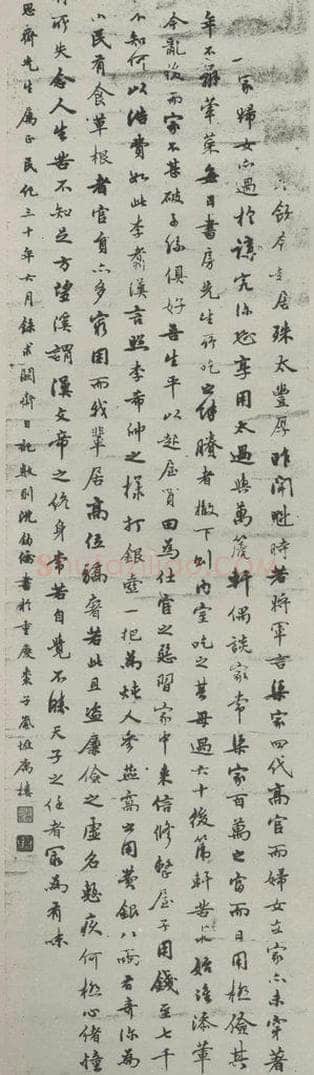 飲食起居殊太豐厚昨聞魁時若將軍言渠家四代高官而婦女在家亦未穿著
一家婦女亦過於講究深恐享用太過與萬箎軒偶談家常渠家百萬之富而日用極儉其
年不辦葷菜每日書房先生所吃之餘賸者撤下到內室吃之其母過六十後箎軒苦求始准添葷
今亂後而家不甚破子孫俱好吾生平以起屋買田為仕宦之惡習家中來信修整屋子用錢至七千
不知何以浩費如此李翥漢言照李希帥之樣打銀壺一把為炖人參燕窩之用費銀八兩有奇深為
小民有食草根者官員亦多窮困而我輩居高位驕奢若此且盜廉儉之虛名慙疚何極心緒憧
有所失念人生苦不知足方望溪謂漢文帝之終身常若自覺不勝天子之任者最為有味
思齊先生屬正民紀三十年六月錄求闕齋日記數則沈鈞儒書於重慶棗子嵐埡樓